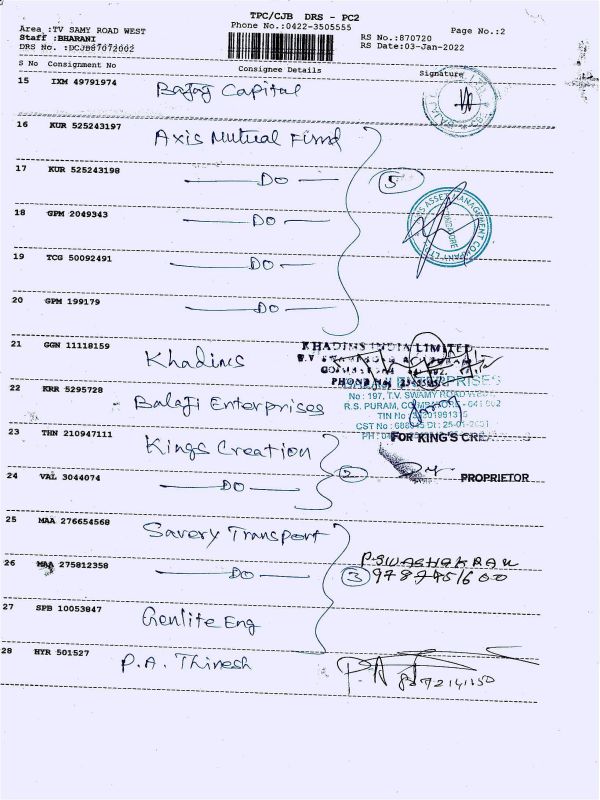 TPC/CJB DRS - PC2
Area :TV SAMY ROAD WEST
Phone No.:0422-3505555
Page No.:2
Staff :BHARANI
RS No.:870720
DRS No. :DCJB87072002
RS Date:03-Jan-2022
S No Consignment No Consignee Details Signature
15 IXM 49791974 Bajaj Capital
16 KUR 525243197 Axis Mutual Fund
17 KUR 525243198 DO 5
18 GPM 2049343 DO
19 TCG 50092491 DO
20 GPM 199179 DO
21 GGN 11118159 Khadims
KHADIMS INDIA LIMITED
22 KRR 5295728 Balaji Enterprises
No : 197, T.V. SWAMY ROAD WEST
R.S. PURAM, COIMBATORE - 641 002
TIN No
CST No :
23 THN 210947111 Kings Creation
FOR KING'S
24 VAL 3044074 DO 2
PROPRIETOR
25 MAA 276654568 Savery Transport
26 MAA 275812358 DO 3
27 SPB 10053847 Genlite Eng
28 HYR 501527 P.A. Thinesh